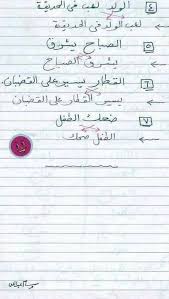 ٤ الولد لعب فى الحديقة
← لعب الولد فى الحديقة
٥ الصباح يشرق
← يشرق الصباح
٦ القطار يسير على القضبان
← يسير القطار على القضبان
٧ ضحك الطفل
← الطفل ضحك